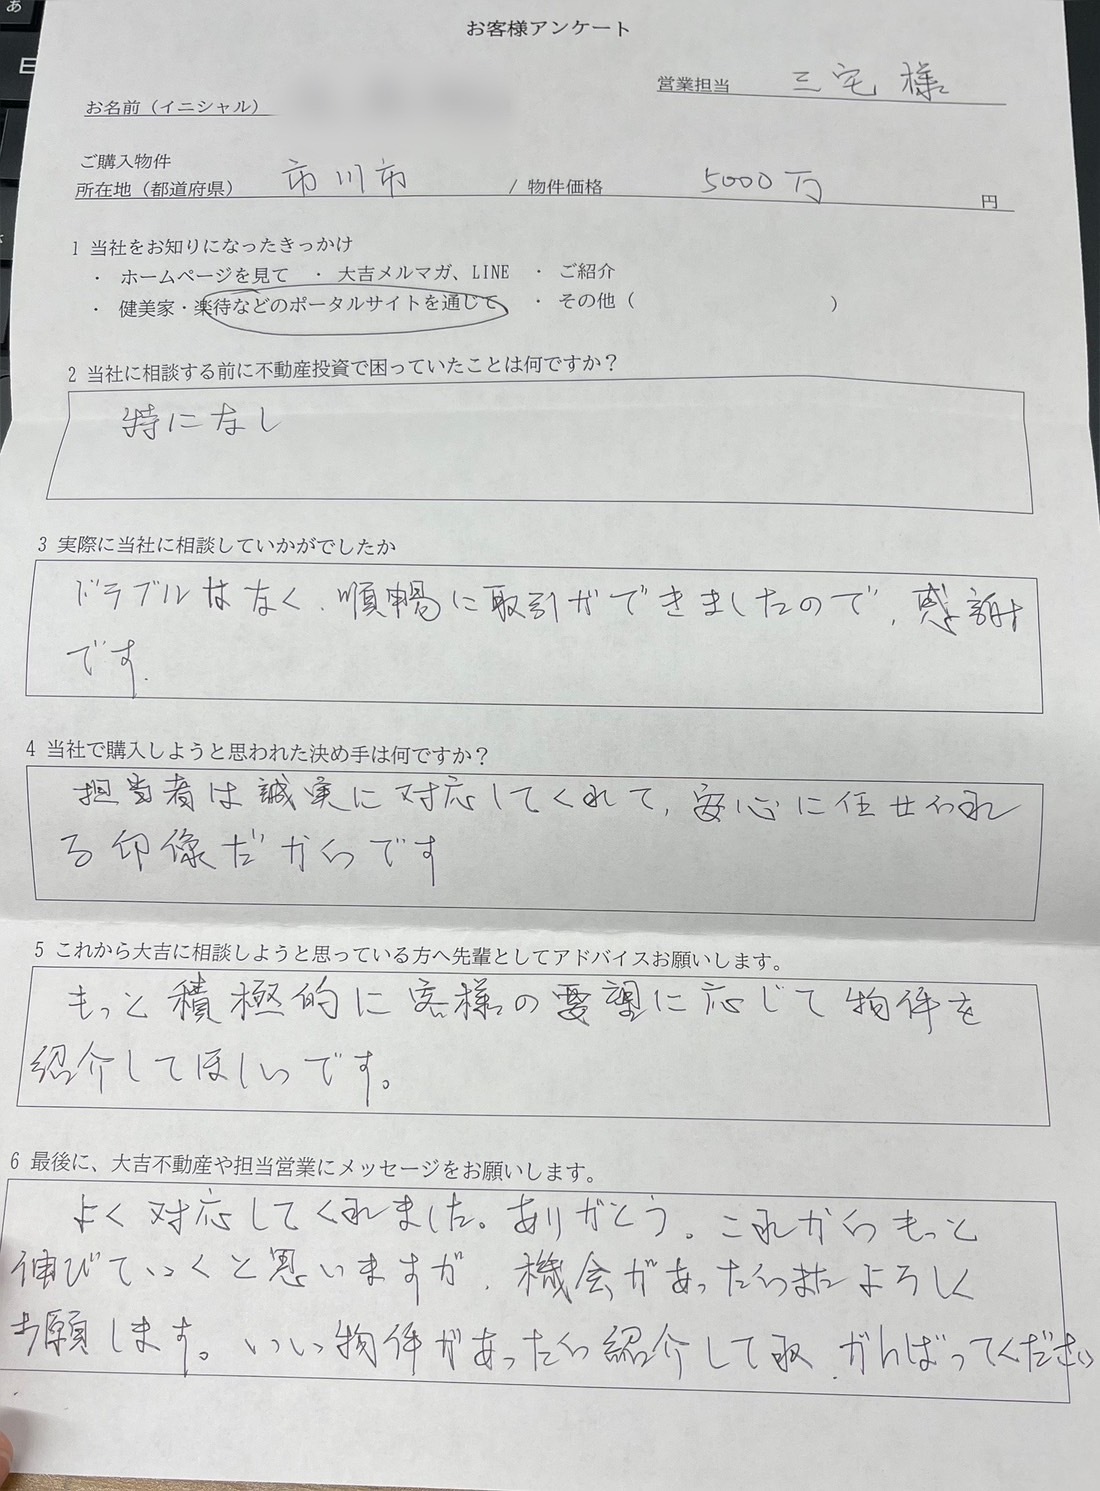 お客様アンケート
営業担当 三宅様
お名前（イニシャル）
ご購入物件
所在地（都道府県） 市川市 / 物件価格 5000万 円
1 当社をお知りになったきっかけ
・ ホームページを見て ・ 大吉メルマガ、LINE ・ ご紹介
・ 健美家・楽待などのポータルサイトを通じて ・ その他（ ）
2 当社に相談する前に不動産投資で困っていたことは何ですか？
特になし
3 実際に当社に相談していかがでしたか
ドラブルはなく、順暢に取引ができましたので、感謝
です.
4 当社で購入しようと思われた決め手は何ですか？
担当者は誠実に対応してくれて、安心に任せられ
る印像だからです
5 これから大吉に相談しようと思っている方へ先輩としてアドバイスお願いします。
もっと積極的に客様の要望に応じて物件を
紹介してほしいです。
6 最後に、大吉不動産や担当営業にメッセージをお願いします。
よく対応してくれました。ありがとう。これからもっと
伸びていくと思いますが、機会があったらまたよろしく
お願します。いい物件があったら紹介して がんばってください